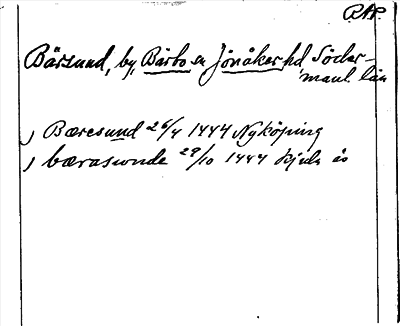 RAP.
Bärsund, by, Bärbo sn Jönåker hd Söder-
manl. län
) Bæresund 26/4 1444 Nyköping
) bærasunde 29/10 1444 Kjula ås